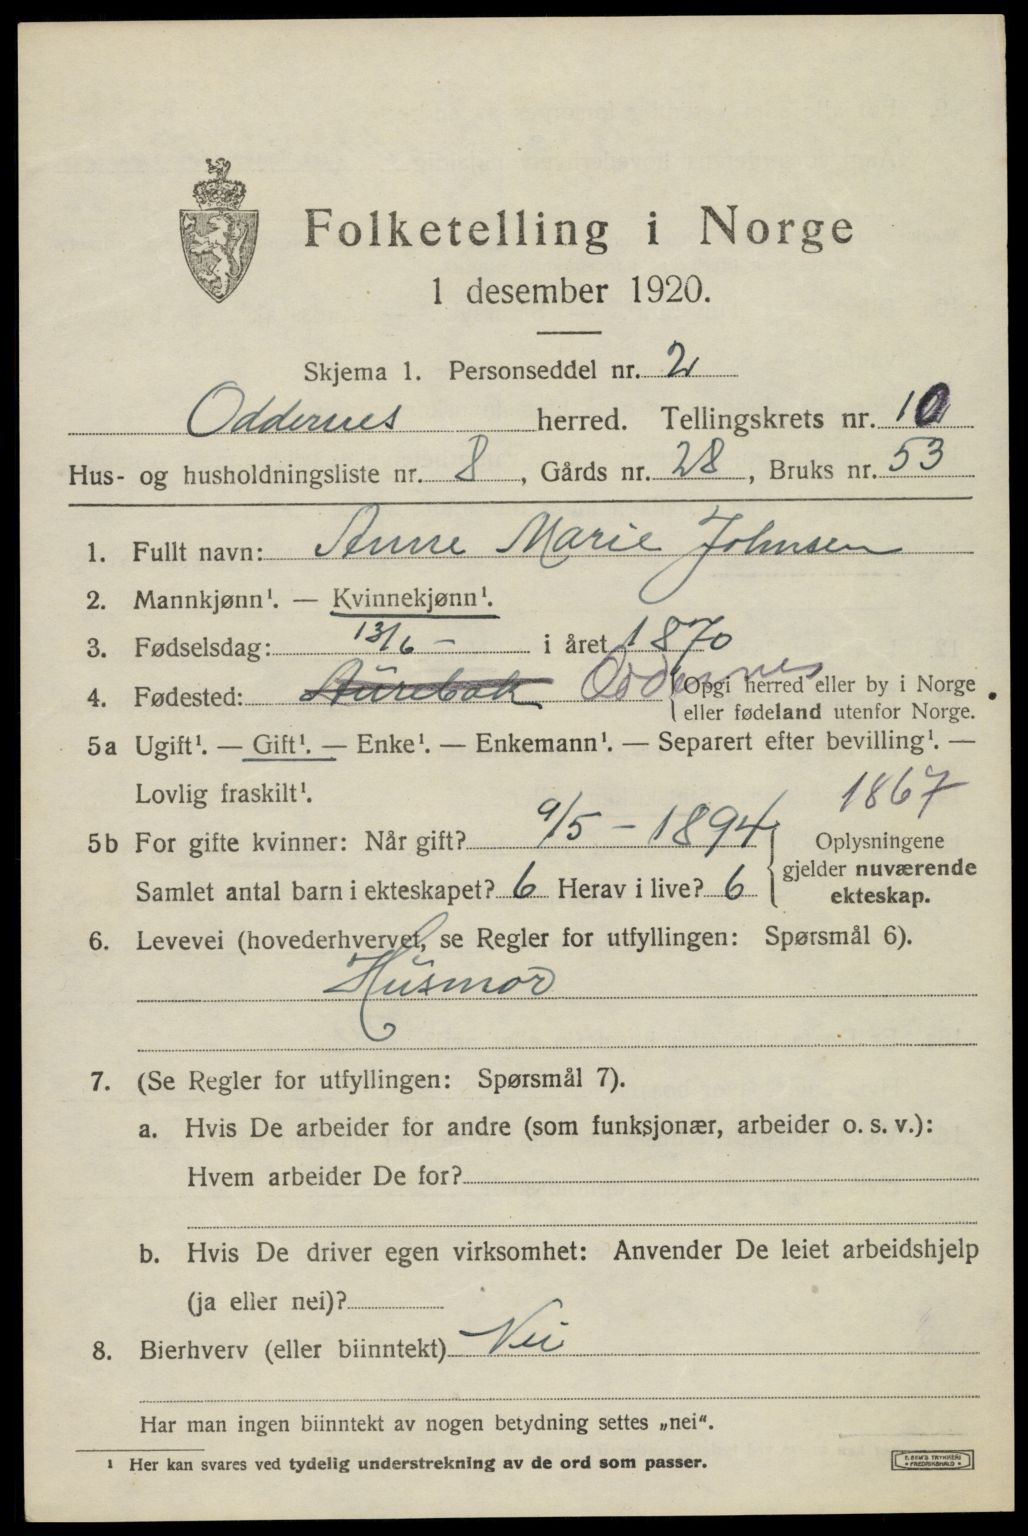 Folketelling i Norge
1 desember 1920.
Skjema 1. Personseddel nr. 2
Oddernes herred. Tellingskrets nr. 10
Hus- og husholdningsliste nr. 8, Gårds nr. 28, Bruks nr. 53
1. Fullt navn: Anne Marie Johnsen
2. Mannkjønn¹. — Kvinnekjønn¹.
3. Fødselsdag: 13/6 - i året 1870
4. Fødested: Aürebak Oddernes Opgi herred eller by i Norge
eller fødeland utenfor Norge.
5a Ugift¹. — Gift¹. — Enke¹. — Enkemann¹. — Separert efter bevilling¹. —
Lovlig fraskilt¹.
1867
5b For gifte kvinner: Når gift? 9/5 - 1894 Oplysningene
gjelder nuværende
Samlet antal barn i ekteskapet? 6 Herav i live? 6 ekteskap.
6. Levevei (hovederhvervet, se Regler for utfyllingen: Spørsmål 6).
Hüsmor
7. (Se Regler for utfyllingen: Spørsmål 7).
a. Hvis De arbeider for andre (som funksjonær, arbeider o. s. v.):
Hvem arbeider De for?
b. Hvis De driver egen virksomhet: Anvender De leiet arbeidshjelp
(ja eller nei)?
8. Bierhverv (eller biinntekt) Nei
Har man ingen biinntekt av nogen betydning settes „nei".
¹ Her kan svares ved tydelig understrekning av de ord som passer.
E. SEM'S TRYKKERI
FREDRIKSHALD